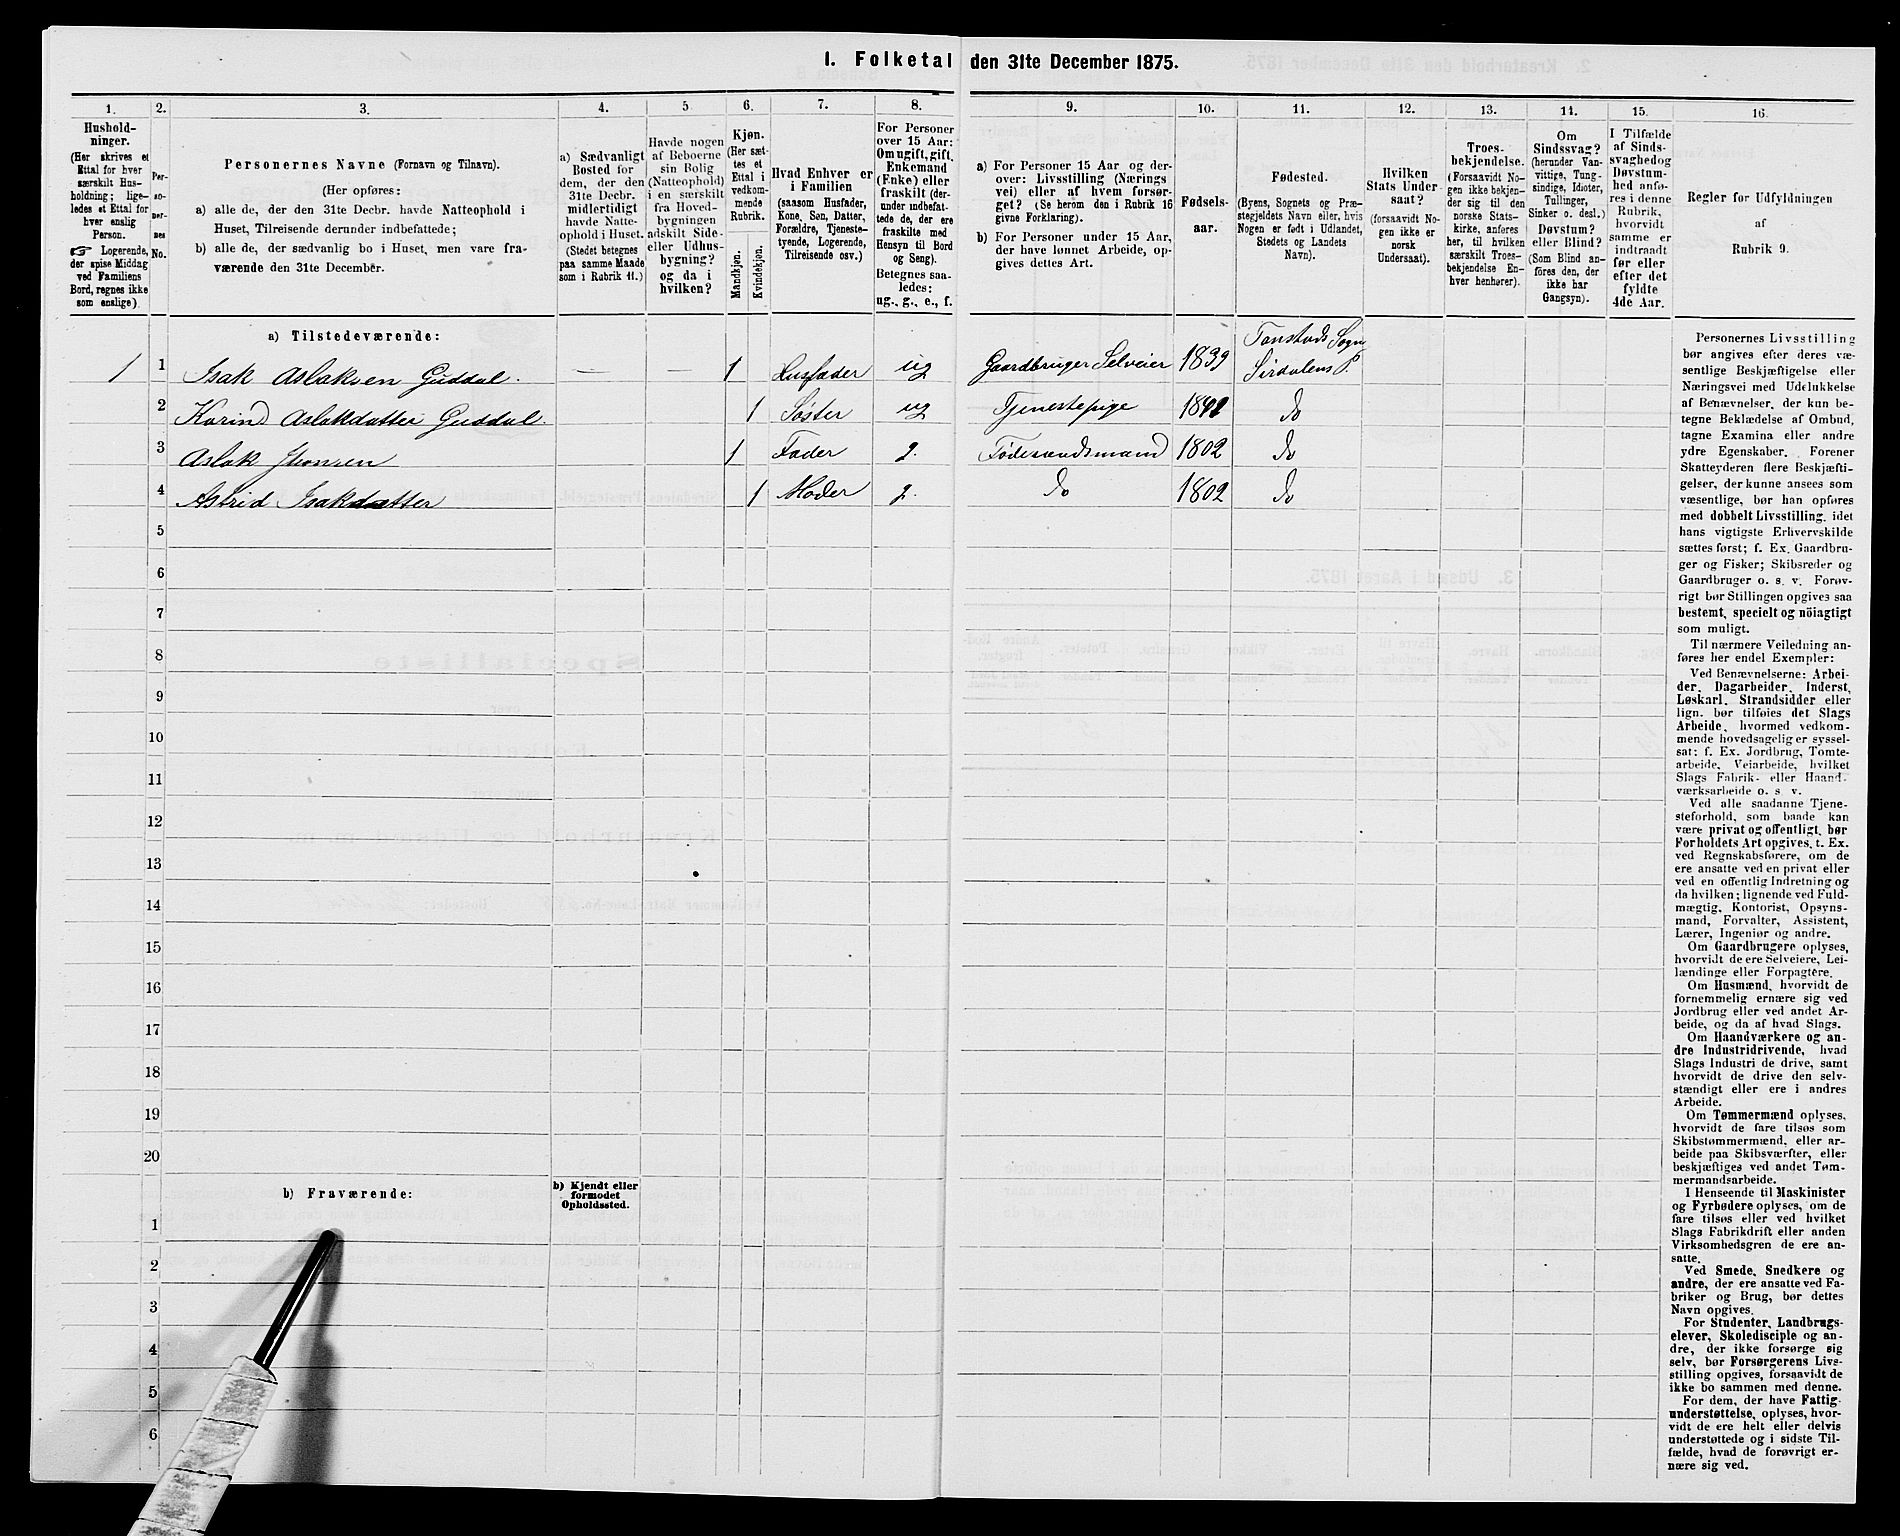 I. Folketal den 31te December 1875.
1.
Hushold-
ninger.
(Her skrives et
Ettal for hver
særskilt Hus-
holdning; lige-
ledes et Ettal for
hver enslig
Person.
☞ Logerende,
der spise Middag
ved Familiens
Bord, regnes ikke
som enslige).
2.
Per-
so-
ner-
nes
No.
3.
Personernes Navne (Fornavn og Tilnavn).
(Her opføres:
a) alle de, der den 31te Decbr. havde Natteophold i
Huset, Tilreisende derunder indbefattede;
b) alle de, der sædvanlig bo i Huset, men vare fra-
værende den 31te December.
4.
a) Sædvanligt
Bosted for
dem, der den
31te Decbr.
midlertidigt
havde Natte-
ophold i Huset.
(Stedet betegnes
paa samme Maade
som i Rubrik 11.)
5
Havde nogen
af Beboerne
sin Bolig
(Natteophold)
i en særskilt
fra Hoved-
bygningen
adskilt Side-
eller Udhus-
bygning?
og da i
hvilken?
6.
Kjøn.
(Her sæt-
tes et
Ettal i
vedkom-
mende
Rubrik.
Mandkjøn.
Kvindekjøn.
7.
Hvad Enhver er
i Familien
(saasom Husfader,
Kone, Søn, Datter,
Forældre, Tjeneste-
tyende, Logerende,
Tilreisende osv.)
8.
For Personer
over 15 Aar:
Om ugift, gift,
Enkemand
(Enke) eller
fraskilt (der-
under indbefat-
tede de, der ere
fraskilte med
Hensyn til Bord
og Seng).
Betegnes saa-
ledes:
ug., g., e., f.
9.
a) For Personer 15 Aar og der-
over: Livsstilling (Nærings
vei) eller af hvem forsør-
get? (Se herom den i Rubrik 16
givne Forklaring).
b) For Personer under 15 Aar,
der have lønnet Arbeide, op-
gives dettes Art.
10.
Fødsels-
aar.
11.
Fødested.
(Byens, Sognets og Præ-
stegjeldets Navn eller, hvis
Nogen er født i Udlandet,
Stedets og Landets
Navn).
12.
Hvilken
Stats Under-
saat?
(forsaavidt No-
gen ikke er
norsk
Undersaat).
13.
Troes-
bekjendelse.
(Forsaavidt No-
gen ikke bekjen-
der sig til den
norske Stats-
kirke, anføres
her, til hvilken
særskilt Troes-
bekjendelse En-
hver henhører).
14.
Om
Sindssvag?
(herunder Van-
vittige, Tung-
sindige, Idioter,
Tullinger,
Sinker o. desl.)
Døvstum?
eller Blind?
(Som Blind an-
føres den, der
ikke har
Gangsyn).
15.
I Tilfælde
af Sinds-
svaghed og
Døvstum-
hed anfø-
res i denne
Rubrik,
hvorvidt
samme er
indtraadt
før eller
efter det
fyldte
4de Aar.
16.
Regler for Udfyldningen
af
Rubrik 9.
a) Tilstedeværende:
1 1 Isak Aslaksen Guddal. — — 1 Husfader ug Gaardbruger Selveier 1839 Tonstads Sogn Sirdalens P.
2 Karind Aslakdatter Guddal. 1 Søster ug Tjenestepige 1842 do
3 Aslak Jhonsen 1 Fader g. Føderaadsmand 1802 do
4 Astrid Isakdatter 1 Moder g. do 1802 do
5
6
7
8
9
10
11
12
13
14
15
16
17
18
19
20
b) Fraværende:
b) Kjendt eller
formodet
Opholdssted.
1
2
3
4
5
6
Personernes Livsstilling
bør angives efter deres væ-
sentlige Beskjæftigelse eller
Næringsvei med Udelukkelse
af Benævnelser, der kun be-
tegne Beklædelse af Ombud,
tagne Examina eller andre
ydre Egenskaber. Forener
Skatteyderen flere Beskjæfti-
gelser, der kunne ansees som
væsentlige, bør han opføres
med dobbelt Livsstilling, idet
hans vigtigste Erhvervskilde
sættes først; f. Ex. Gaardbru-
ger og Fisker; Skibsreder og
Gaardbruger o. s. v. Forøv-
rigt bør Stillingen opgives saa
bestemt, specielt og nöiagtigt
som muligt.
Til nærmere Veiledning an-
føres her endel Exempler:
Ved Benævnelserne: Arbei-
der, Dagarbeider, Inderst,
Løskarl, Strandsidder eller
lign. bør tilføies det Slags
Arbeide, hvormed vedkom-
mende hovedsagelig er syssel-
sat; f. Ex. Jordbrug, Tomte-
arbeide, Veiarbeide, hvilket
Slags Fabrik- eller Haand-
værksarbeide o. s. v.
Ved alle saadanne Tjene-
steforhold, som baade kan
være privat og offentligt, bør
Forholdets Art opgives, f. Ex.
ved Regnskabsførere, om de
ere ansatte ved en privat eller
ved en offentlig Indretning og
da hvilken; lignende ved Fuld-
mægtig, Kontorist, Opsyns-
mand, Forvalter, Assistent,
Lærer, Ingeniør og andre.
Om Gaardbrugere oplyses,
hvorvidt de ere Selveiere, Lei-
lændinge eller Forpagtere.
Om Husmænd, hvorvidt de
fornemmelig ernære sig ved
Jordbrug eller ved andet Ar-
beide, og da af hvad Slags.
Om Haandværkere og an-
dre Industridrivende, hvad
Slags Industri de drive, samt
hvorvidt de drive den selv-
stændigt eller ere i andres
Arbeide.
Om Tømmermænd oplyses,
hvorvidt de fare tilsøs som
Skibstømmermænd, eller ar-
beide paa Skibsværfter, eller
beskjæftiges ved andet Tøm-
mermandsarbeide.
I Henseende til Maskinister
og Fyrbødere oplyses, om de
fare tilsøs eller ved hvilket
Slags Fabrikdrift eller anden
Virksomhedsgren de ere an-
satte.
Ved Smede, Snedkere og
andre, der ere ansatte ved Fa-
briker og Brug, bør dettes
Navn opgives.
For Studenter, Landbrugs-
elever, Skoledisciple og an-
dre, der ikke forsørge sig
selv, bør Forsørgerens Livs-
stilling opgives, forsaavidt de
ikke bo sammen med denne.
For dem, der have Fattig-
understøttelse, oplyses, hvor-
vidt de ere helt eller delvis
understøttede og i sidste Til-
fælde, hvad de forøvrigt er-
nære sig ved.